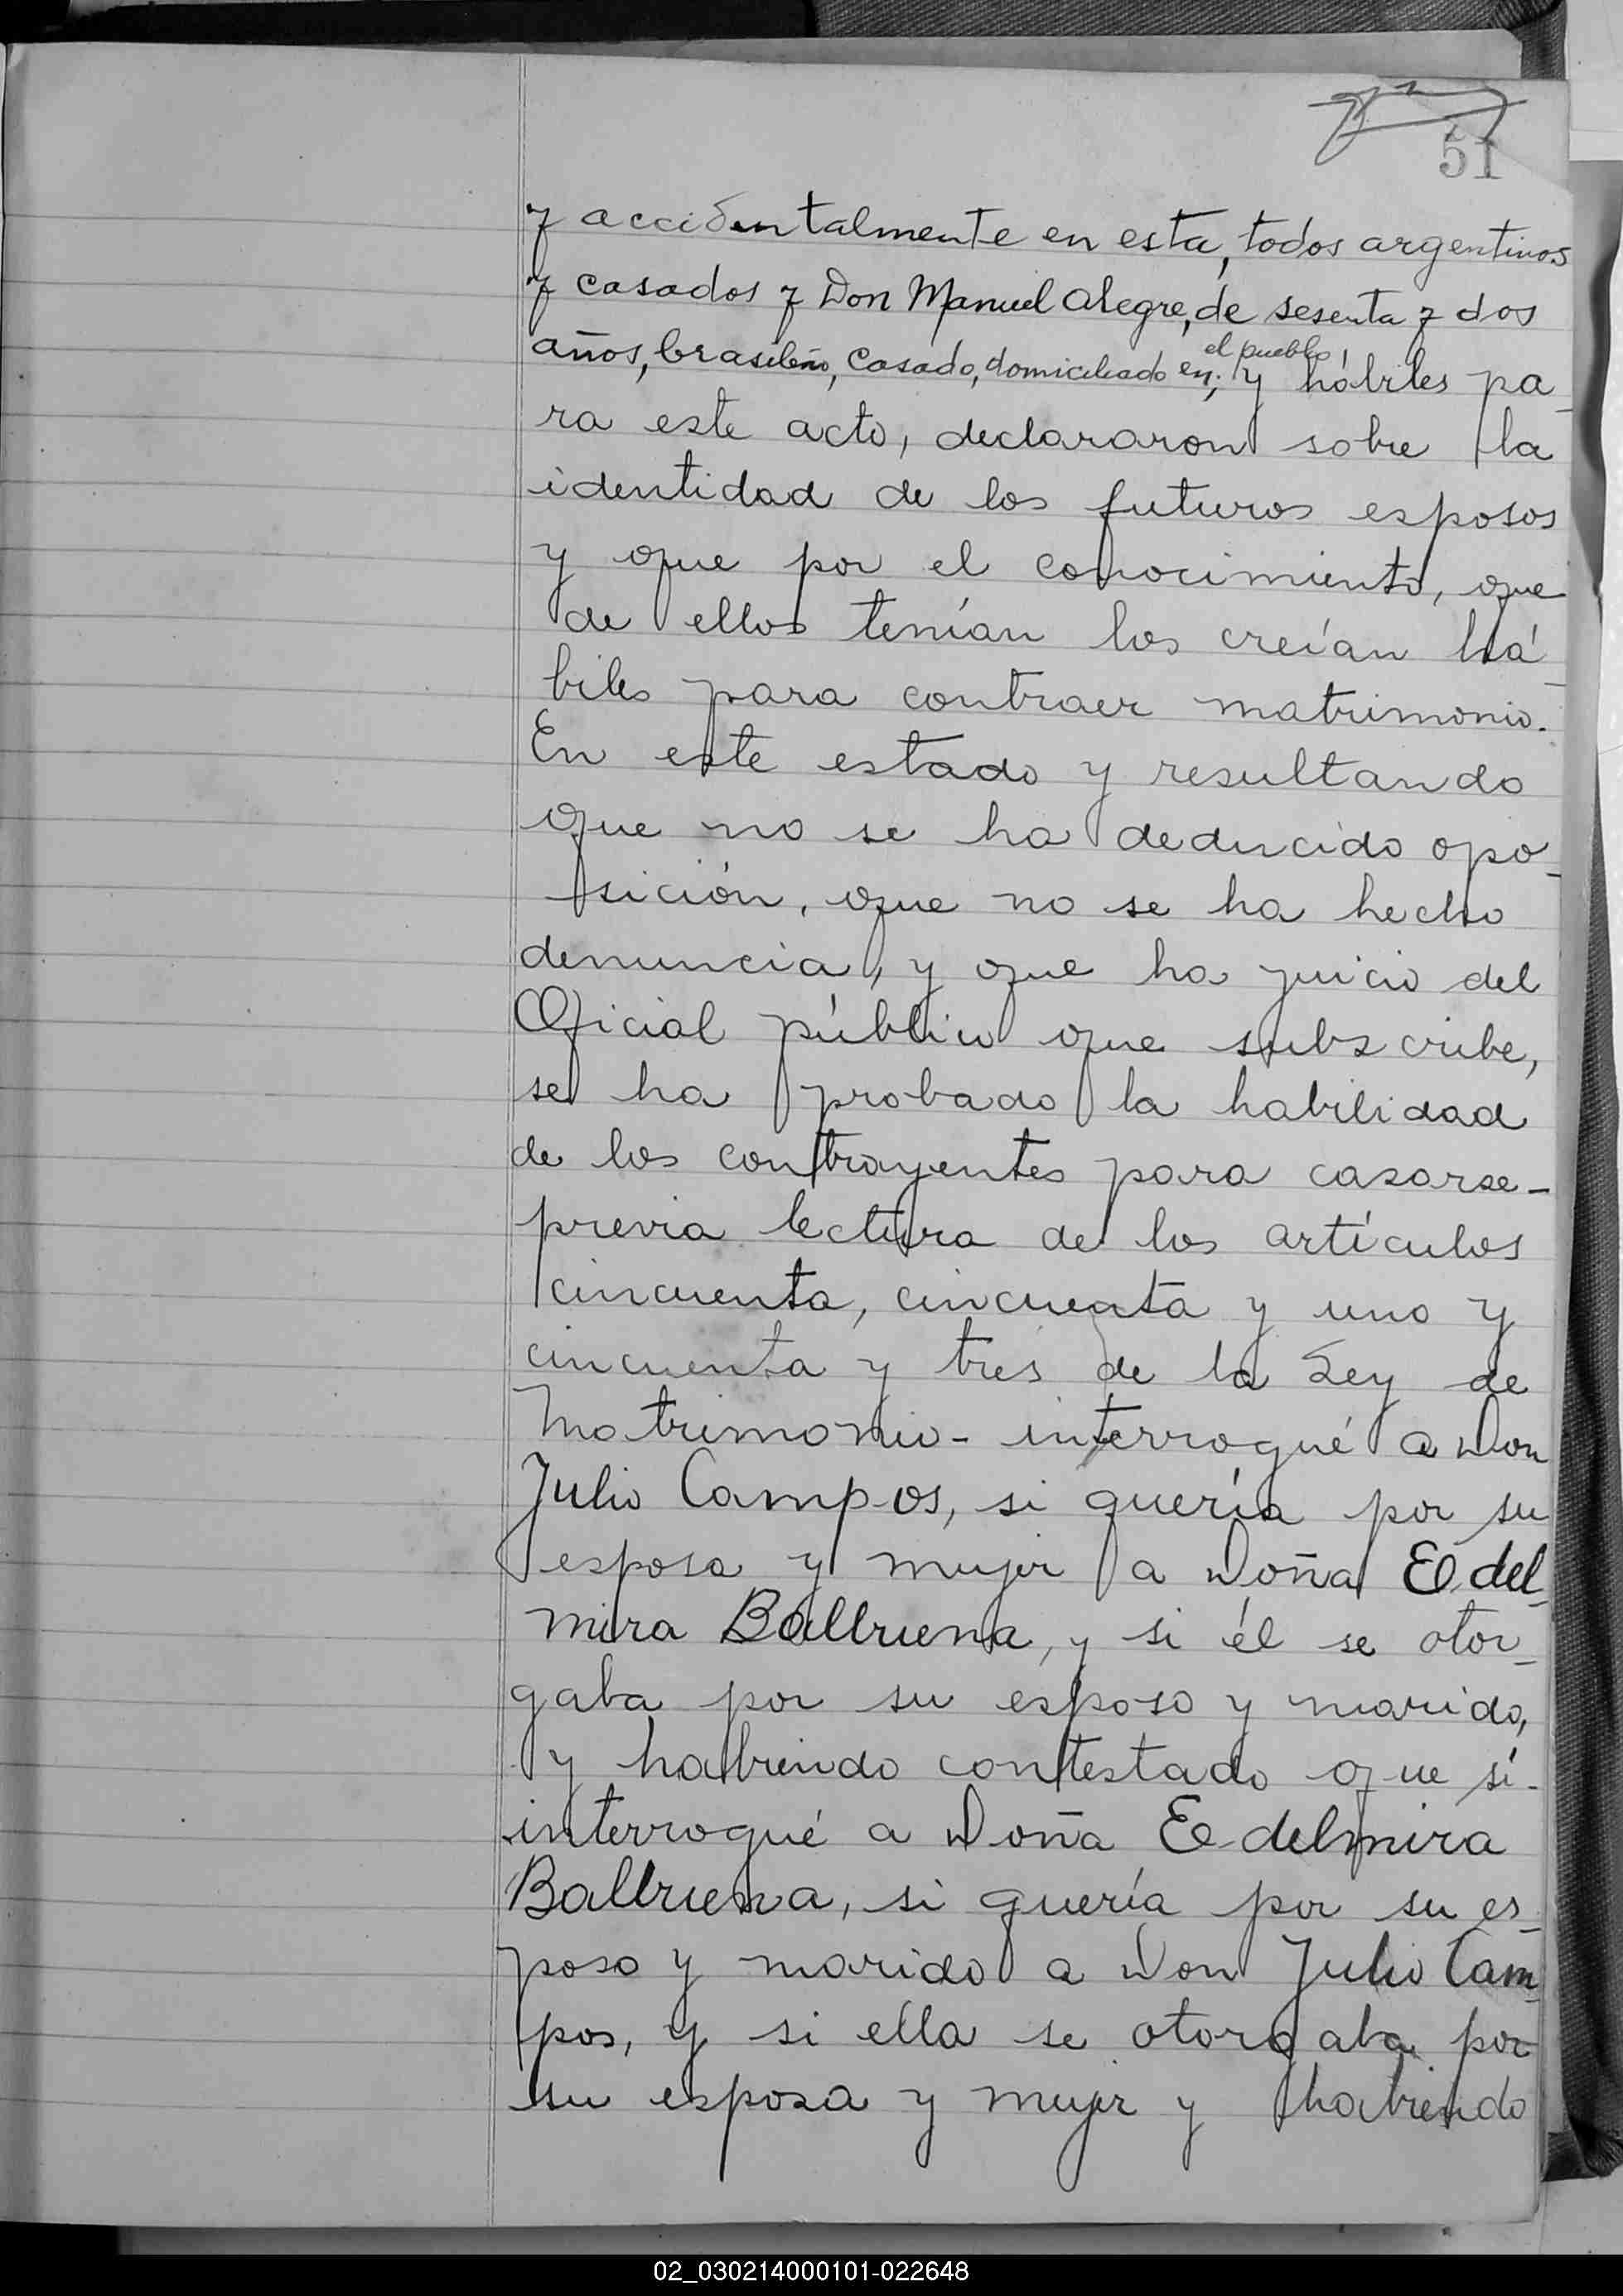 51
y accidentalmente en esta, todos argentinos
y casados y Don Manuel Alegre, de sesenta y dos
el pueblo
años, brasileño, casado, domiciliado en; y hábiles pa-
ra este acto, declararon sobre la
identidad de los futuros esposos
y que por el conocimiento, que
de ellos tenían los creían há-
biles para contraer matrimonio.
En este estado y resultando
que no se ha deducido opo-
sición, que no se ha hecho
denuncia, y que ha juicio del
Oficial público que subscribe,
se ha probado la habilidad
de los contrayentes para casarse-
previa lectura de los artículos
cincuenta, cincuenta y uno y
cincuenta y tres de la Ley de
Matrimonio- interrogué a Don
Julio Campos, si quería por su
esposa y mujer a Doña Edel-
mira Balbuena, y si él se otor-
gaba por su esposo y marido,
y habiendo contestado que sí-
interrogué a Doña Edelmira
Balbuena, si quería por su es-
poso y marido a Don Julio Cam-
pos, y si ella se otorgaba por
su esposa y mujer y habiendo
02_030214000101-022648